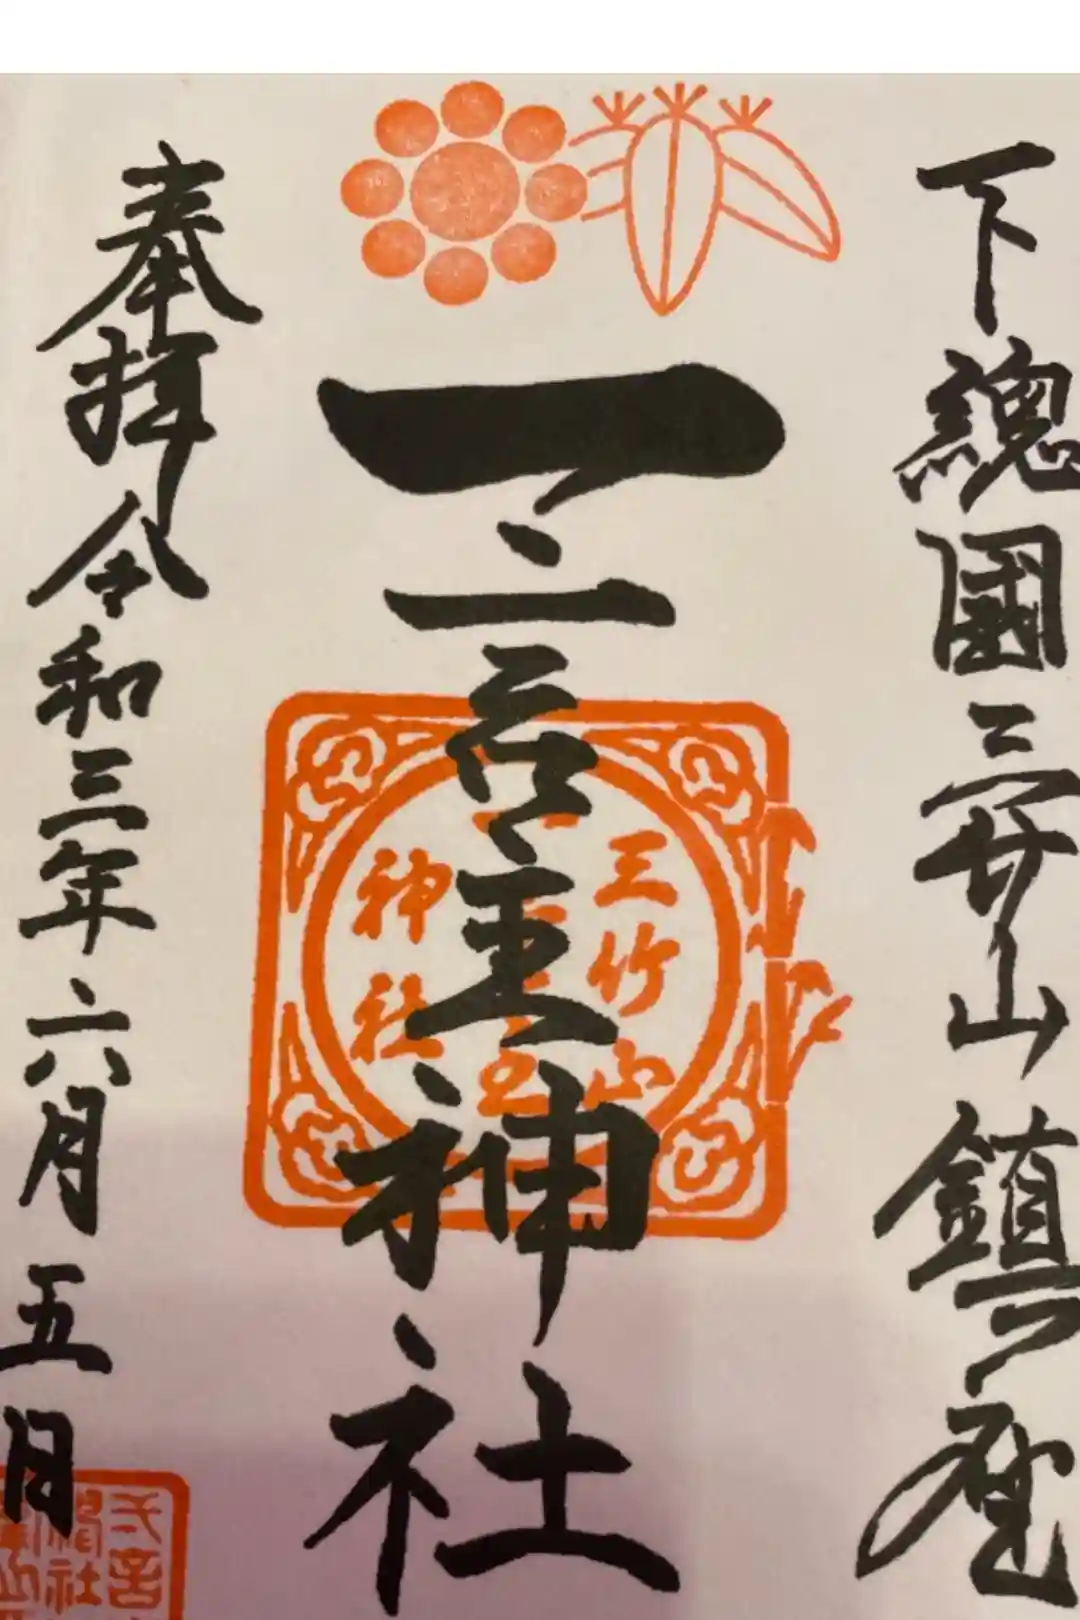 下總國三竹山鎮座
一言主神社
三竹山
神社
奉拝 令和三年六月五日